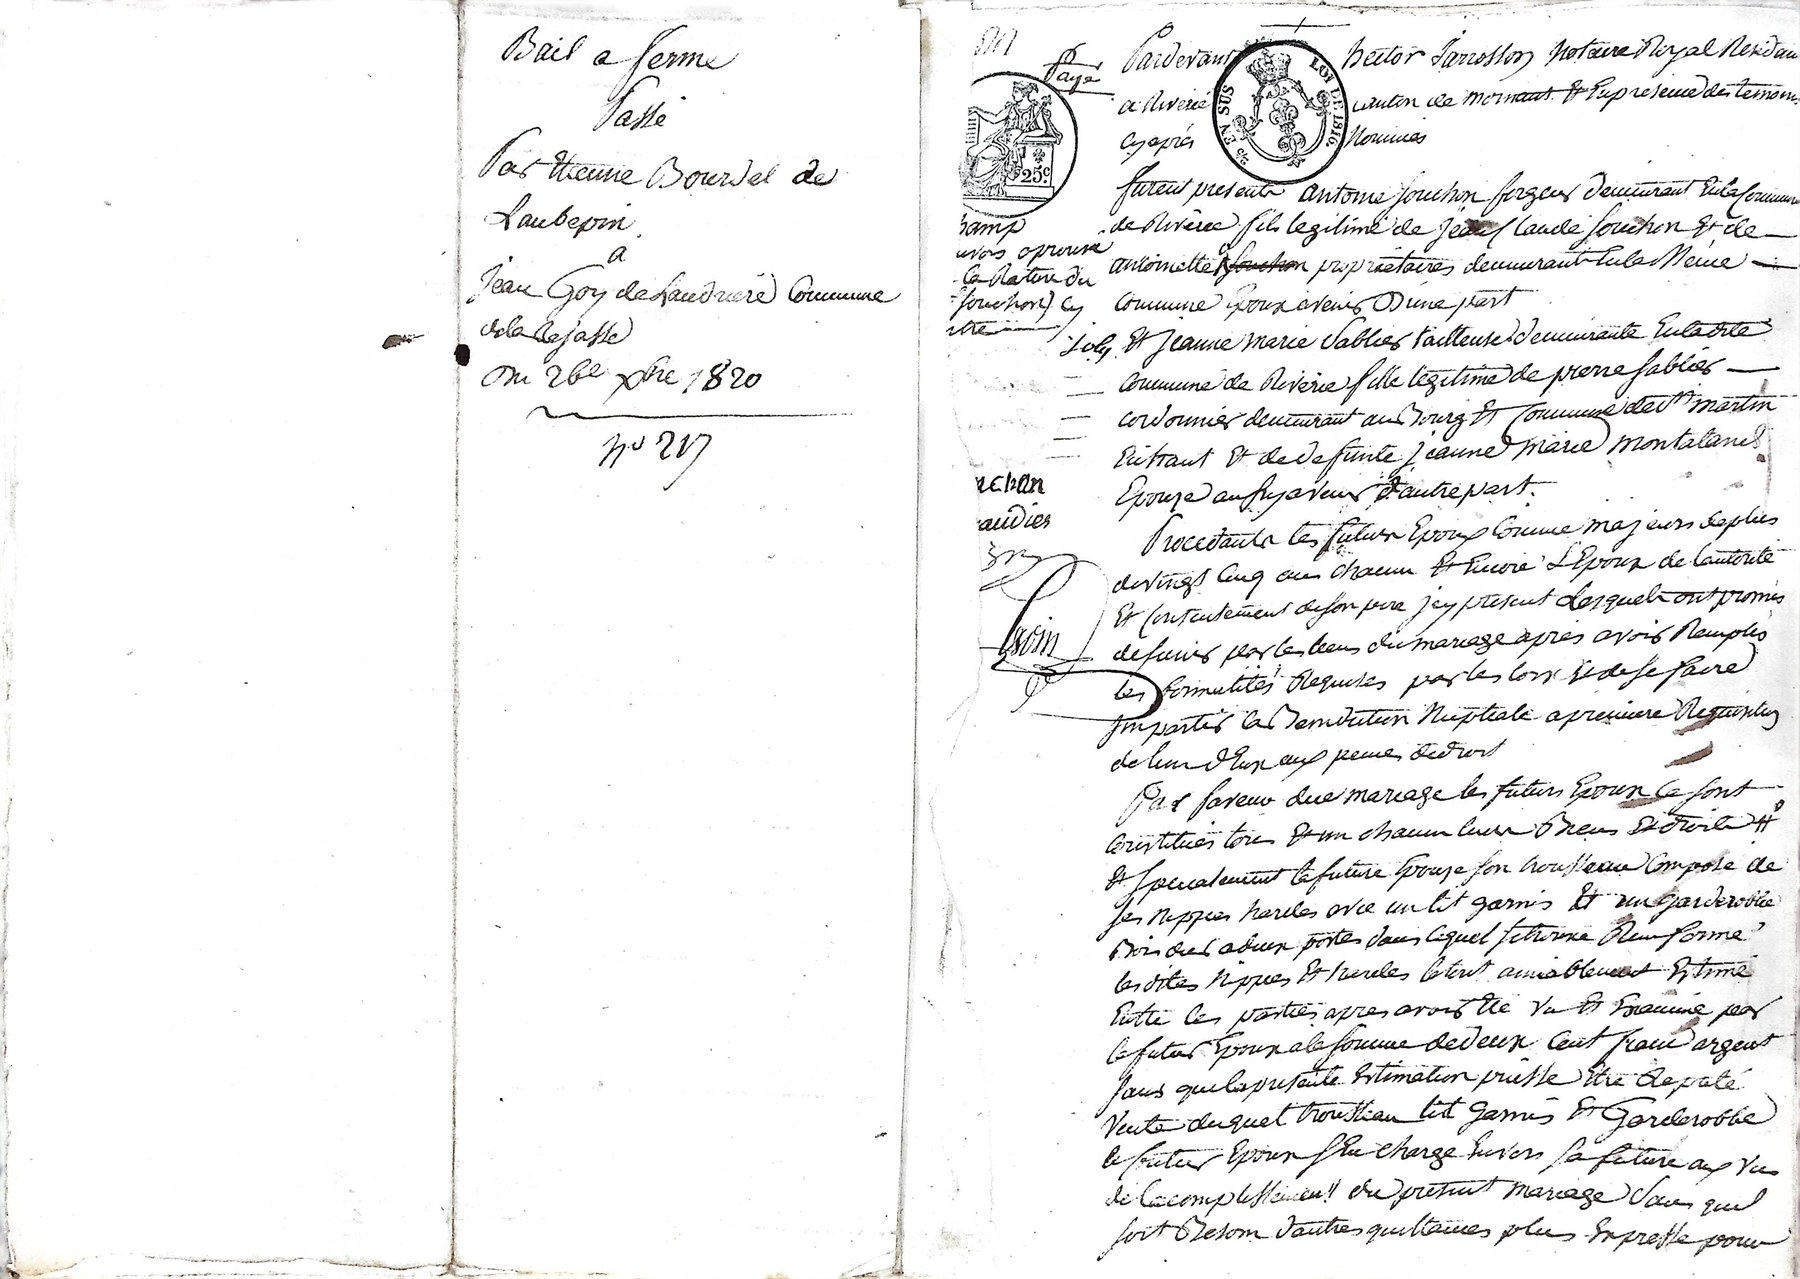 Bail a ferme
Passé
Par Etienne Bourdel de
Laubepin
a
Jean Goy de Laudriere Commune
de la
du 26e xbre 1820
no 217
217
Paye
EN SUS
LOI DE 1816.
25c
Pardevant hector Jarrosson notaire Royal Residant
a Riverie canton de mornant Et En presence des temoins
cy apres Nommés
furent presents antoine Souchon forgeur demeurant En la Commune
de Riverie fils legitime de Jean Claude Souchon Et de
antoinette Souchon proprietaires demeurant En la Meme
Commune Epoux avenir D'une part
avons aprouvé
la Rature du
Souchon
Joly
Et Jeanne Marie Sablier tailleuse demeurante En la dite
commune de Riverie fille legitime de pierre Sablier
cordonnier demeurant au Bourg Et Commune de St martin
Enhaut Et de defunte Jeanne Marie Montaland
Epouze aussy avenir d'autre part.
Procedants les futurs Epoux Comme majeurs de plus
de vingt Cinq ans chacun Et Encore L'Epoux de l'autorité
Et Consentement de son pere Icy present Lesquels ont promis
de s'unir par les liens du mariage apres avoir Remplis
les formalités Requises par les loix Et de se faire
Impartir la Benediction Nuptiale a premiere Requisition
de l'un d'Eux aux peines de droit
Par faveur du mariage les futurs Epoux ce sont
Constitués tous Et un chacun leurs Biens Et droits
Et specialement la future Epouze son trousseau Composé de
ses nippes hardes avec un lit garnis Et un garderobbe
Bois dur a deux portes dans lequel se trouve Renfermé
lesdites Nippes Et hardes le tout amiablement Estimé
Entre les parties apres avoir Eté vu Et Examiné par
le futur Epoux a la somme de deux Cent franc argent
sans que la presente Estimation puisse Etre reputé
Vente duquel trousseau lit Garnis Et Garderobbe
le futur Epoux s'En charge Envers sa future aux vus
de lacomplissement du present mariage sans quil
soit Besoin d'autres quittances plus Expresse pour